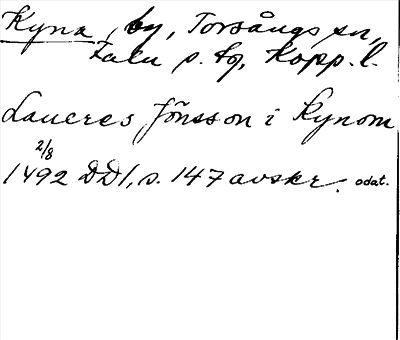 Kyna, by, Torsångs sn,
Falu s. tg, Kopp. l.
Laucres Jönsson i Kynom
2/8
1492 DD1, s. 147 avskr. odat.